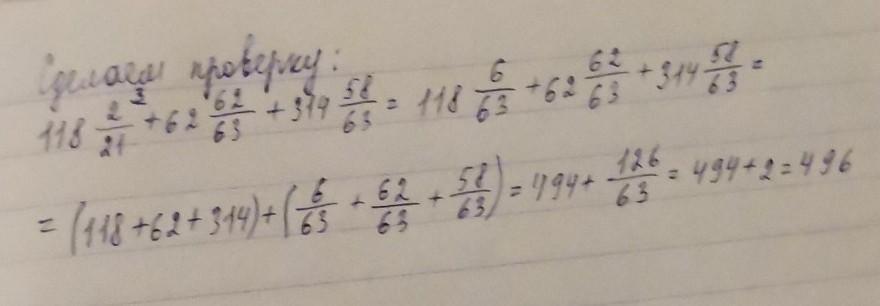 Сделаем проверку:
118 2/21 ³ + 62 62/63 + 314 58/63 = 118 6/63 + 62 62/63 + 314 58/63 =
= (118 + 62 + 314) + (6/63 + 62/63 + 58/63) = 494 + 126/63 = 494 + 2 = 496